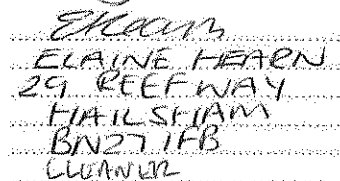 EHearn
ELAINE HEARN
29 REEFWAY
HAILSHAM
BN27 1FB
CLEANER